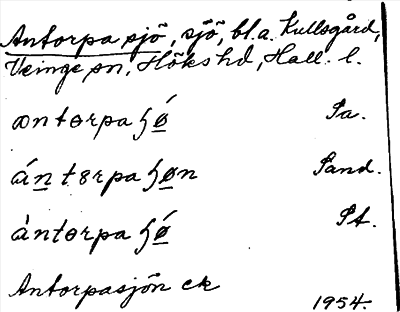 Antorpa sjö, sjö, bl.a. Kullsgård,
Veinge sn, Höks hd, Hall. l.
antorpa ɧǿ Pa.
ántɵrpa ɧøn Sand.
àntɵrpa ɧǿ St.
Antorpasjön ek
1954.